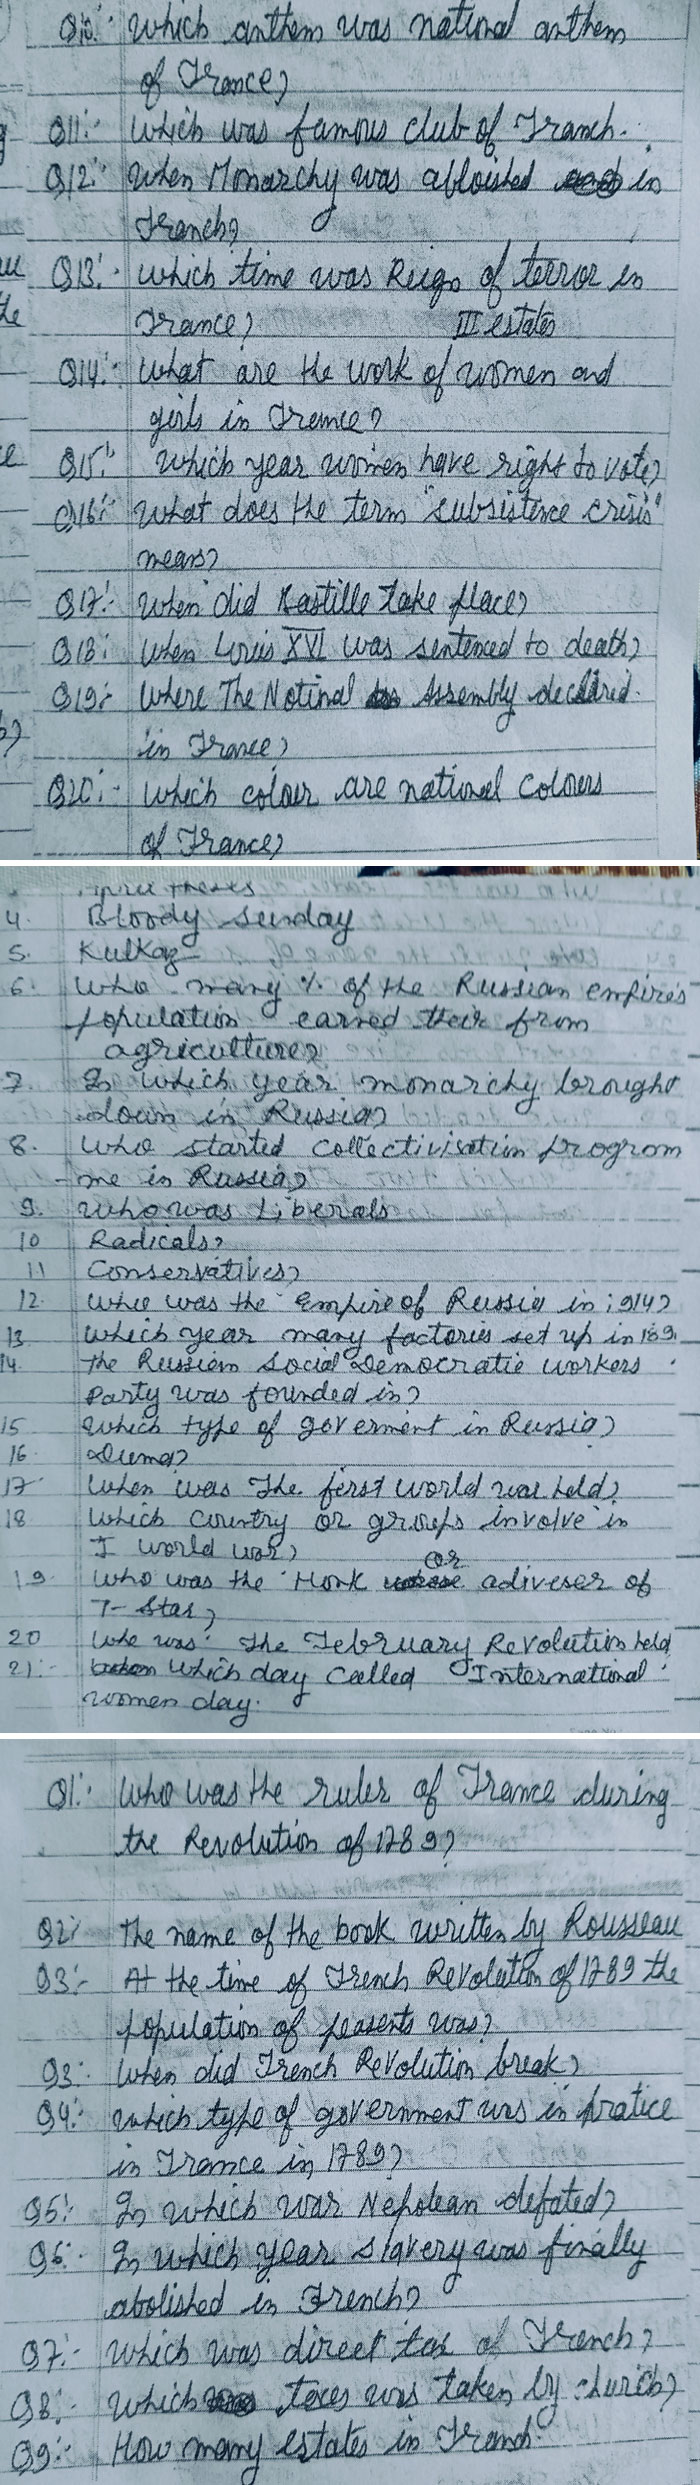 Q10:- Which anthem was national anthem
of France?
Q11:- Which was famous club of Franch.
Q12:- When Monarchy was abloished in
Franch?
Q13:- Which time was Reign of terror in
France? III estates
Q14:- What are the work of women and
girls in France?
Q15:- Which year women have right to vote?
Q16:- What does the term "subsistence crisis"
means?
Q17:- When did Bastille take place?
Q18:- When Louis XVI was sentenced to death?
Q19:- Where The Notinal Assembly declared.
in France?
Q20:- Which colour are national colours
of France?
4. Bloody sunday
5. Kulkaz
6. Who many % of the Russian empires
population earned their from
agriculture?
7. In which year monarchy brought
down in Russia?
8. Who started collectivisation program
me in Russia?
9. Who was Liberals
10 Radicals?
11 Conservatives?
12. Who was the Empire of Russia in 1914?
13. Which year many factories set up in 189.
14. the Russian Social Democratic workers
Party was founded in?
15 Which type of goverment in Russia?
16. Duma?
17 When was The first world war held?
18 Which country or groups involve in
I world war?
19 Who was the Monk or adiveser of
T-Star?
20 Who was The February Revolution held
21:- Which day called International
women day.
Q1:- Who was the ruler of France during
the Revolution of 1789?
Q2:- The name of the book written by Rousseau
Q3:- At the time of French Revolution of 1789 the
population of peasents was?
Q3:- When did French Revolution break?
Q4:- Which type of government was in pratice
in France in 1789?
Q5:- In which war Nepolean defated?
Q6:- In which year slavery was finally
abolished in French?
Q7:- Which was direct tax of French?
Q8:- Which taxes was taken by church?
Q9:- How many estates in Franch.